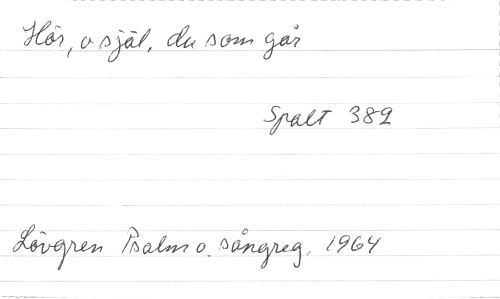 Hör, o själ, du som går
Spalt 382
Lövgren Psalm o. sångreg. 1964